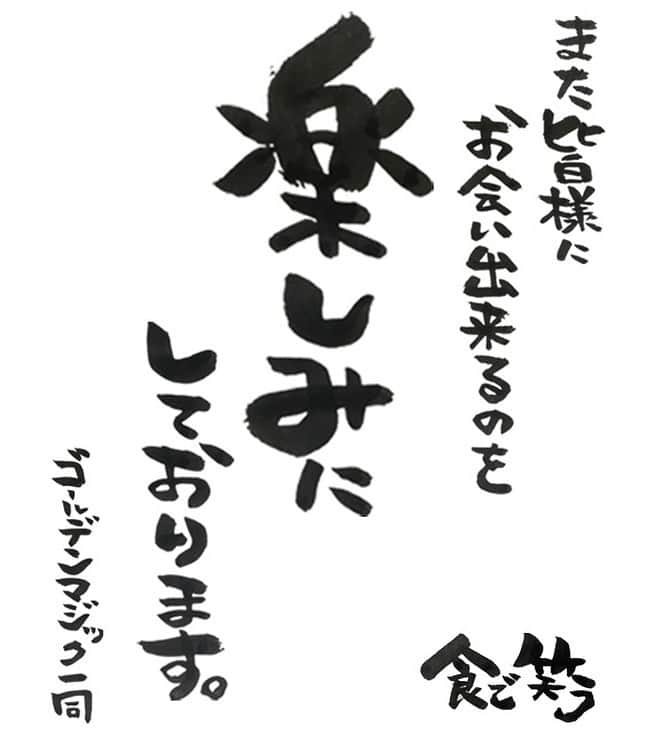 また皆様に
お会い出来るのを
楽しみに
しております。
ゴールデンマジック一同
食で笑う